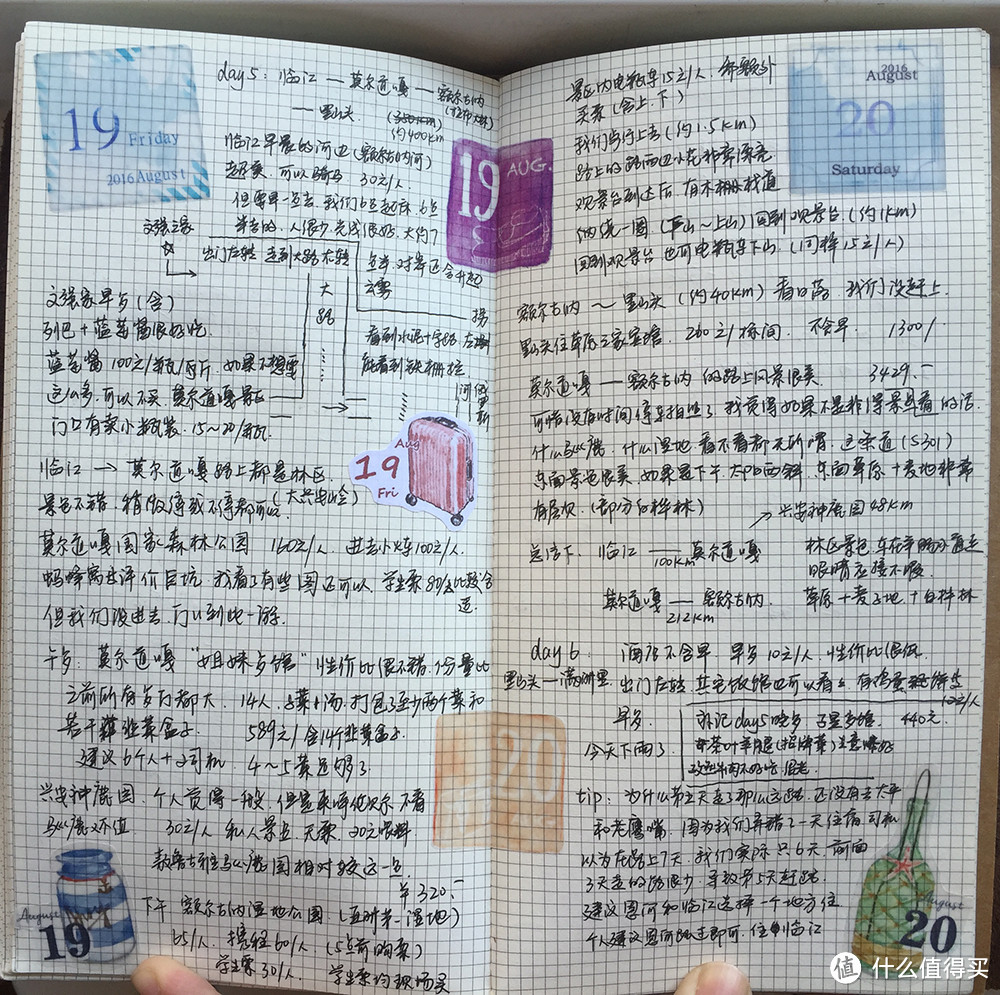 19 Friday
2016 August
day 5：临江 — 莫尔道嘎 — 额尔古纳
— 黑山头
约400km
临江早晨的河边（额尔古纳河）
超美，可以骑马 30元/人
但需早一点去，我们6点起床，6点
半去的，人很少，光线很好，大约7
点半，对岸还会升起
云雾
出门左转 走到大路右转
大路
拐
看到水泥十字路 左拐
能看到铁栅栏
河
俄罗斯
文强家早歺（含）
列巴＋蓝莓酱很好吃
蓝莓酱100元/瓶/斤 如果不想要
这么多，可以不买，莫尔道嘎景区
门口有卖小瓶装，15～20/瓶
19 AUG.
Aug
19
Fri
临江 → 莫尔道嘎路上都是林区
景色不错，稍微停或不停都可以（大兴安岭）
莫尔道嘎国家森林公园 160元/人，进去小火车100元/人
蚂蜂窝上评价巨坑，我看了有些图还可以，学生票80/人比较合适
但我们没进去，门口到此一游
午歺：莫尔道嘎“姐妹歺馆”性价比很不错，份量比
之前所有歺厅都大，14人，8菜1汤，打包了至少两个菜和
若干韭菜盒子 589元/含14个韭菜盒子
建议6个人＋司机 4～5菜足够了
兴安神鹿园，个人觉得一般，但是来呼伦贝尔不看
驯鹿又不值 30元/人 私人景点，无票，20元喂料
敖鲁古雅驯鹿园相对较远一点
¥320.-
下午 额尔古纳湿地公园（亚洲第一湿地）
65/人，携程60/人（5点前购票）
学生票30/人 学生票约现场买
August
19
2016
August
20
Saturday
景区内电瓶车15元/人，需额外
买票（含上、下）
我们步行上去（约1.5km）
路上的路两边小花非常漂亮
观景台到达后 有木栅栈道
绕一圈（下山～上山）回到观景台（约1km）
回到观景台 也可电瓶车下山（同样15元/人）
额尔古纳～黑山头（约40km）看日落，我们没赶上
黑山头住草原之家宾馆 260元/标间 不含早 1300/
莫尔道嘎 — 额尔古纳 的路上风景很美 3429.-
可惜没有时间停车拍照了，我觉得如果不是非得景点看的话
什么驯鹿，什么湿地，看不看都无所谓，这条道（S301）
东面景色很美，如果是下午，太阳西斜，东面草原＋麦地非常
有层次（部分白桦林）
↗ 兴安神鹿园48km
总结下：临江 —100km— 莫尔道嘎 林区景色
眼睛应接不暇
莫尔道嘎 —212km— 额尔古纳 草原＋麦子地＋白桦林
day 6：酒店不含早 早歺10元/人，性价比很低
黑山头—满洲里 出门左转 其它饭馆也可以看看
10元/人
早歺
今天下雨了
补记day5晚歺 440元
tip：为什么第五天走了那么远路，还没有去太平
和老鹰嘴，因为我们弄错了一天住宿，司机
以为在路上7天，我们实际只6天，前面
3天走的路很少，导致第5天赶路
建议恩河和临江选择一个地方住
个人建议恩河路过即可，住临江
20
August
20
值 什么值得买